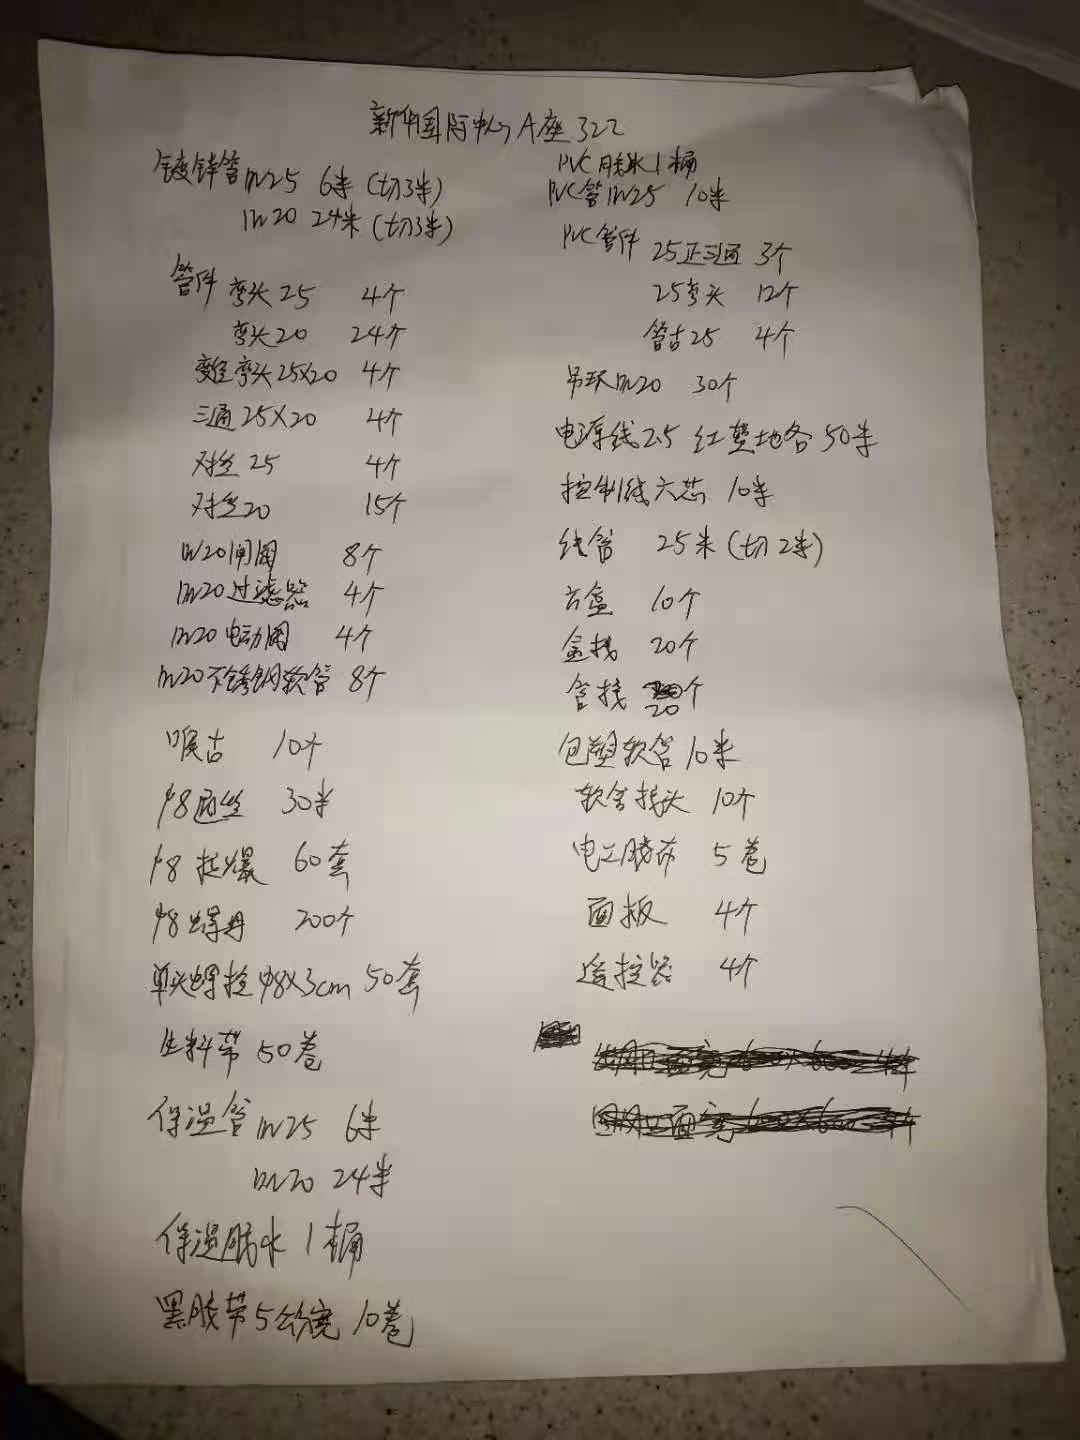 新华国际中心A座322
镀锌管DN25 6米(切3米)
DN20 24米(切3米)
管件 弯头25 4个
弯头20 24个
变径弯头25X20 4个
三通25X20 4个
对丝25 4个
对丝20 15个
DN20闸阀 8个
DN20过滤器 4个
DN20电动阀 4个
DN20不锈钢软管 8个
喉古 10个
φ8通丝 30米
φ8拉爆 60套
φ8螺丹 200个
单头螺拴φ8X3cm 50套
生料带 50卷
保温管DN25 6米
DN20 24米
保温胶水 1桶
黑胶带5公分宽 10卷
PVC胶水1桶
PVC管DN25 10米
PVC管件 25正三通 3个
25弯头 12个
管古25 4个
吊环DN20 30个
电源线2.5 红蓝地各50米
控制线六芯 10米
线管 25米(切2米)
方盒 10个
盒接 20个
管接 20个
包塑软管10米
软管接头 10个
电工胶布 5卷
面板 4个
遥控器 4个